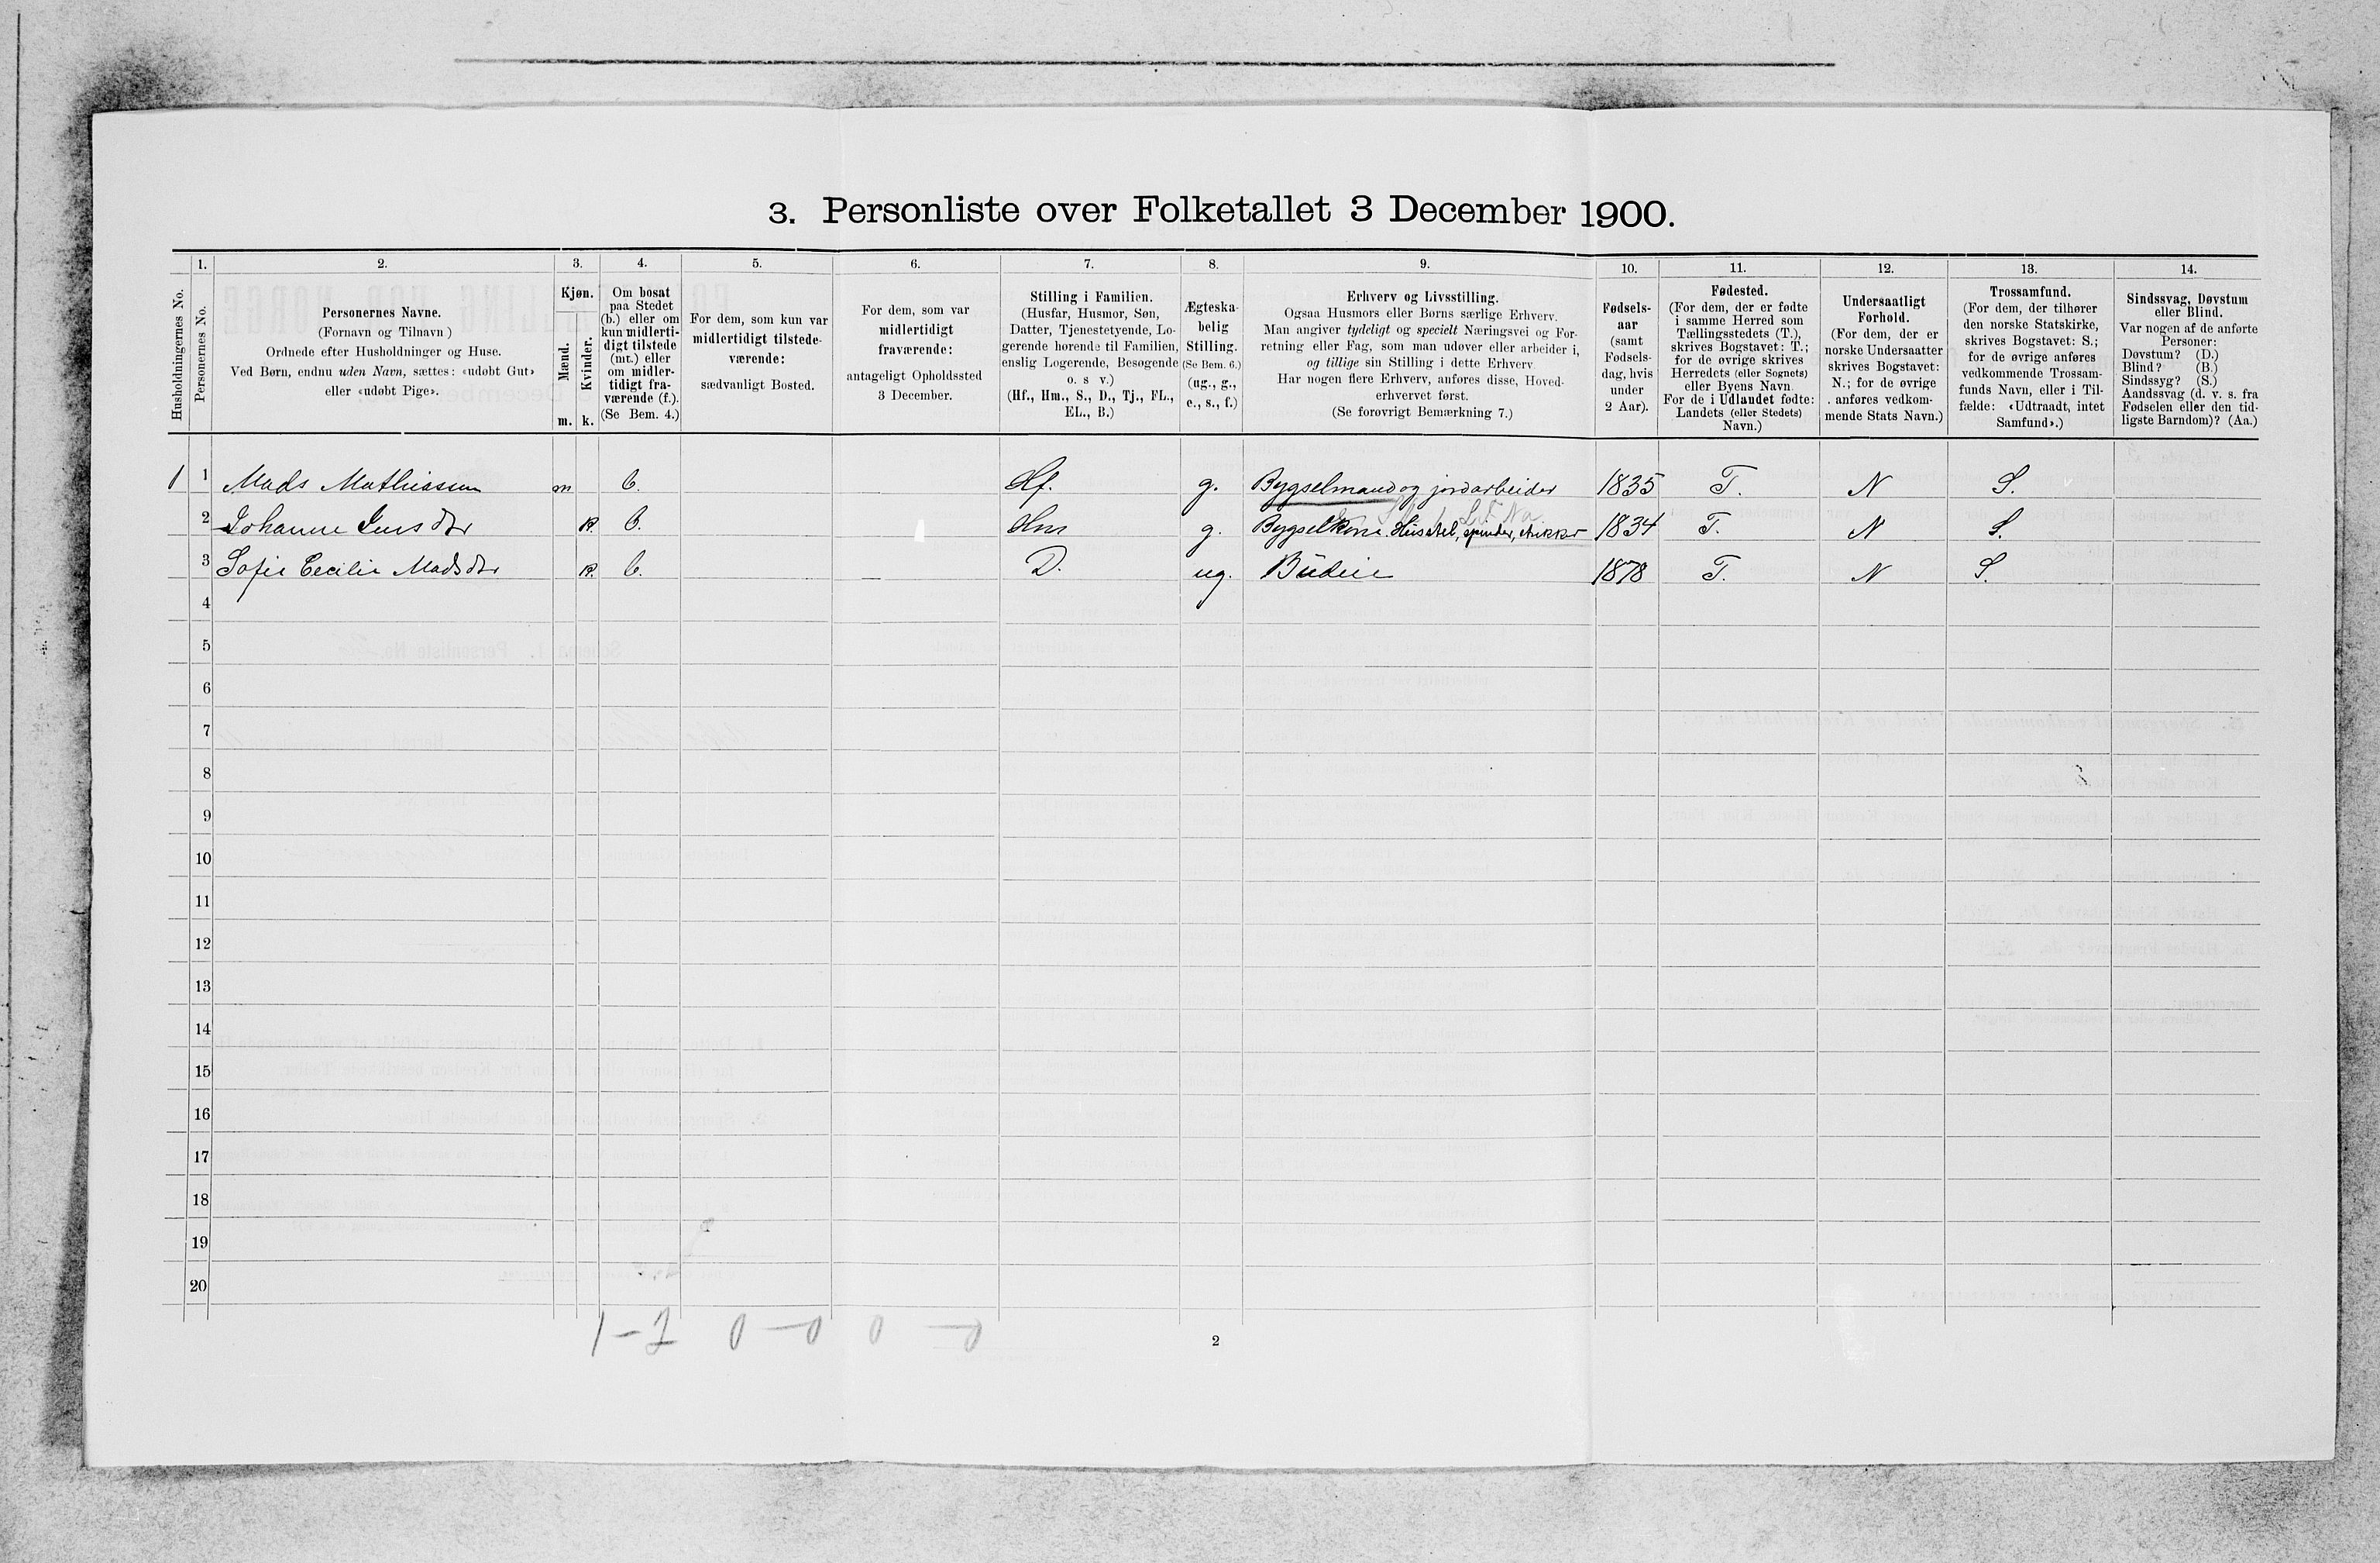 3. Personliste over Folketallet 3 December 1900.
1. 2. 3. 4. 5. 6. 7. 8. 9. 10. 11. 12. 13. 14.
Husholdningernes No.
Personernes No.
Personernes Navne.
(Fornavn og Tilnavn)
Ordnede efter Husholdninger og Huse.
Ved Børn, endnu uden Navn, sættes: «udøbt Gut»
eller «udøbt Pige».
Kjøn.
Mænd.
Kvinder.
m. k.
Om bosat
paa Stedet
(b.) eller om
kun midlerti-
digt tilstede
(mt.) eller
om midler-
tidigt fra-
værende (f.).
(Se Bem. 4.)
For dem, som kun var
midlertidigt tilstede-
værende:
sædvanligt Bosted.
For dem, som var
midlertidigt
fraværende:
antageligt Opholdssted
3 December.
Stilling i Familien.
(Husfar, Husmor, Søn,
Datter, Tjenestetyende, Lo-
gerende hørende til Familien,
enslig Logerende, Besøgende
o. s v.)
(Hf., Hm., S., D., Tj., FL.,
EL., B.)
Ægteska-
belig
Stilling.
(Se Bem. 6.)
(ug., g.,
e., s., f.)
Erhverv og Livsstilling.
Ogsaa Husmors eller Børns særlige Erhverv.
Man angiver tydeligt og specielt Næringsvei og For-
retning eller Fag, som man udøver eller arbeider i,
og tillige sin Stilling i dette Erhverv.
Har nogen flere Erhverv, anføres disse, Hoved-
erhvervet først.
(Se forøvrigt Bemærkning 7.)
Fødsels-
aar
(samt
Fødsels-
dag, hvis
under
2 Aar).
Fødested.
(For dem, der er fødte
i samme Herred som
Tællingsstedets (T.),
skrives Bogstavet: T.;
for de øvrige skrives
Herredets (eller Sognets)
eller Byens Navn.
For de i Udlandet fødte:
Landets (eller Stedets)
Navn.)
Undersaatligt
Forhold.
(For dem, der er
norske Undersaatter
skrives Bogstavet:
N.; for de øvrige
anføres vedkom-
mende Stats Navn.)
Trossamfund.
(For dem, der tilhører
den norske Statskirke,
skrives Bogstavet: S.;
for de øvrige anføres
vedkommende Trossam-
funds Navn, eller i Til-
fælde: «Udtraadt, intet
Samfund».)
Sindssvag, Døvstum
eller Blind.
Var nogen af de anførte
Personer:
Døvstum? (D.)
Blind? (B.)
Sindssyg? (S.)
Aandssvag (d. v. s. fra
Fødselen eller den tid-
ligste Barndom)? (Aa.)
1 1 Mads Mathiassen m b. Hf. g. Bygselmand og jordarbeider 1835 T. N S.
2 Johanne Jensdtr k. b. Hm g. Bygselkone. Husstel, spinder, strikker 1834 T. N S.
3 Sofie Cecilie Madsdtr k. b. D. ug. Budeie 1878 T. N S.
4
5
6
7
8
9
10
11
12
13
14
15
16
17
18
19
20
2